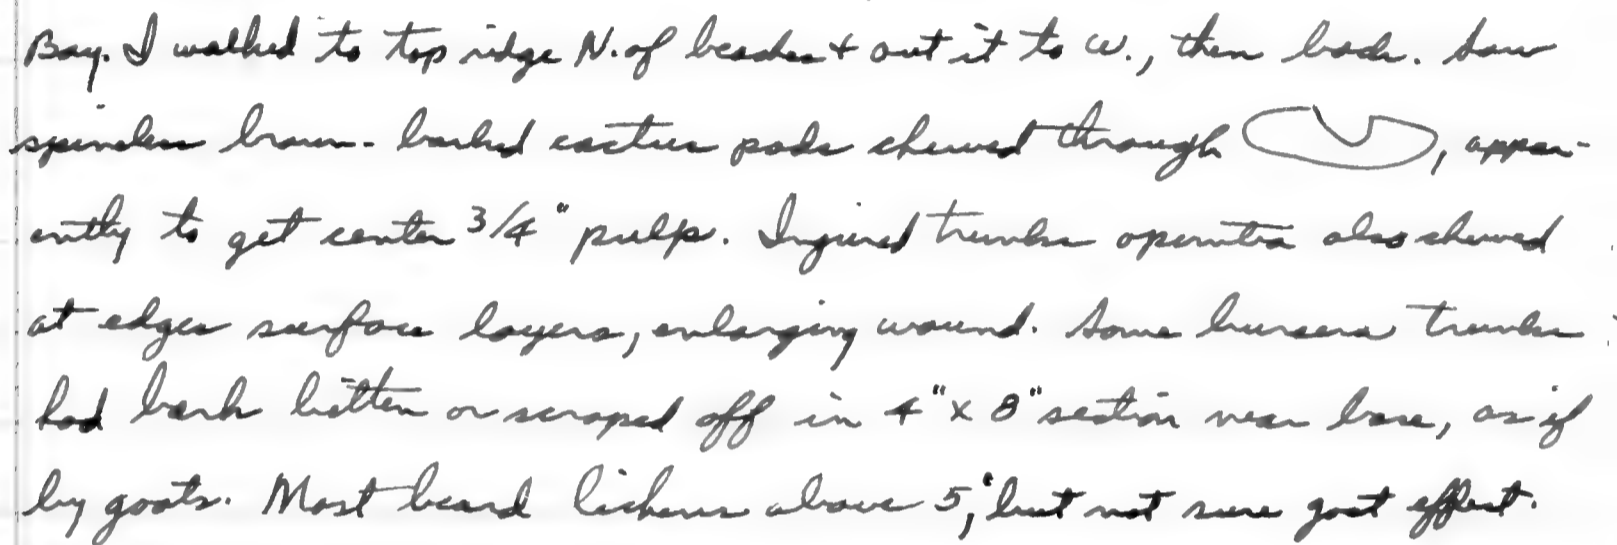 Bay. I walked to top ridge N. of beaches + out it to W., then back. Saw
spineless brown-barked cactus pads chewed through, appar-
ently to get center 3/4" pulp. Injured trunks opuntia also chewed
at edges surface layers, enlarging wound. Some bursera trunks
had bark bitten or scraped off in 4" x 8" section near base, as if
by goats. Most beard lichens above 5', but not sure goat effect.